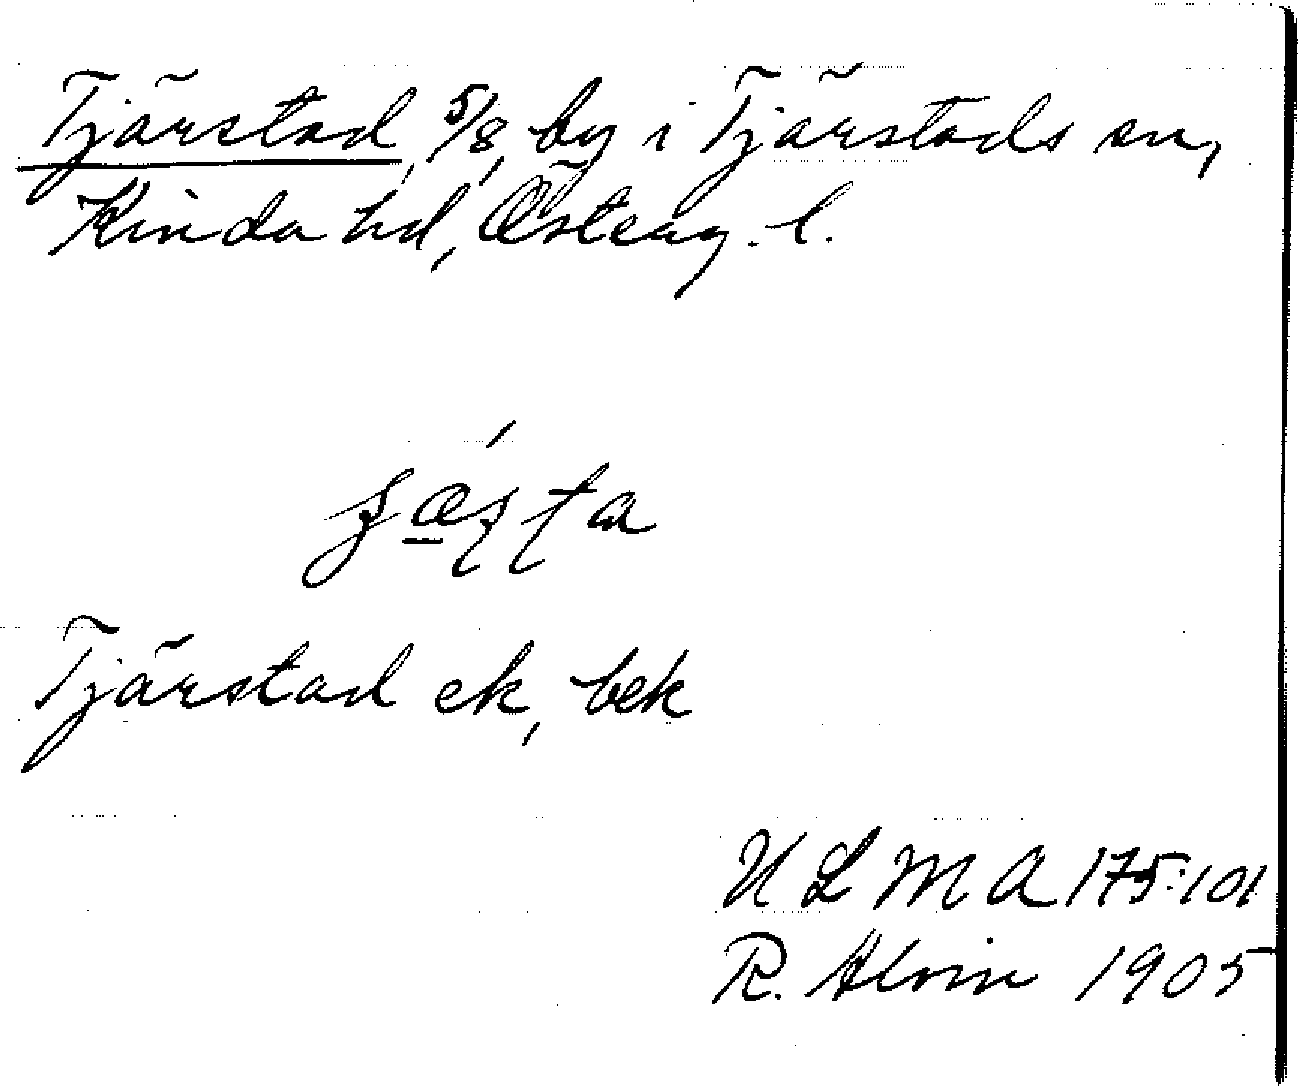 Tjärstad, 5/8, by i Tjärstads sn,
Kinda hd, Österg. l.
Tjärstad ek, bek
ULMA 175:101
R. Alvin 1905